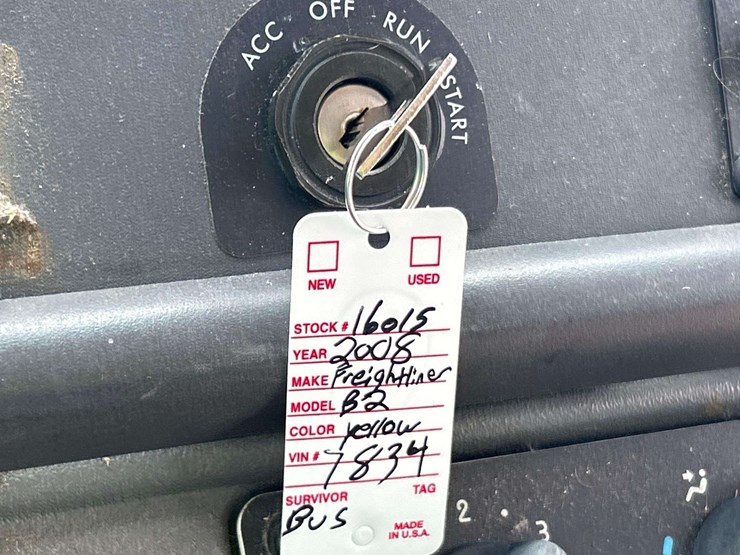 ACC OFF RUN START
NEW USED
STOCK # 16015
YEAR 2008
MAKE Freightliner
MODEL B2
COLOR yellow
VIN # 7834
SURVIVOR TAG
BUS
MADE
IN U.S.A.
2 • 3